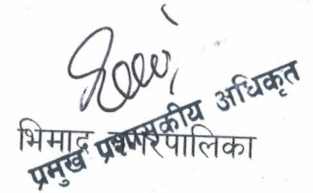 भिमाद नगरपालिका
प्रमुख प्रशासकीय अधिकृत